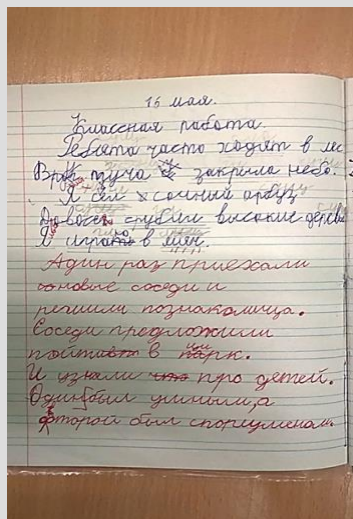 15 мая.
Классная работа.
Ребята часто ходят в лес
Вдруг туча закрыла небо.
Я ел сочный арбуз
высокие деревья
Я играю в мяч.
Адин раз приехали
новые соседи и
решили познакомица.
Соседи предложили
пойти в парк.
И узнали что про детей.
Один был умным, а
фторой был спорцменам.